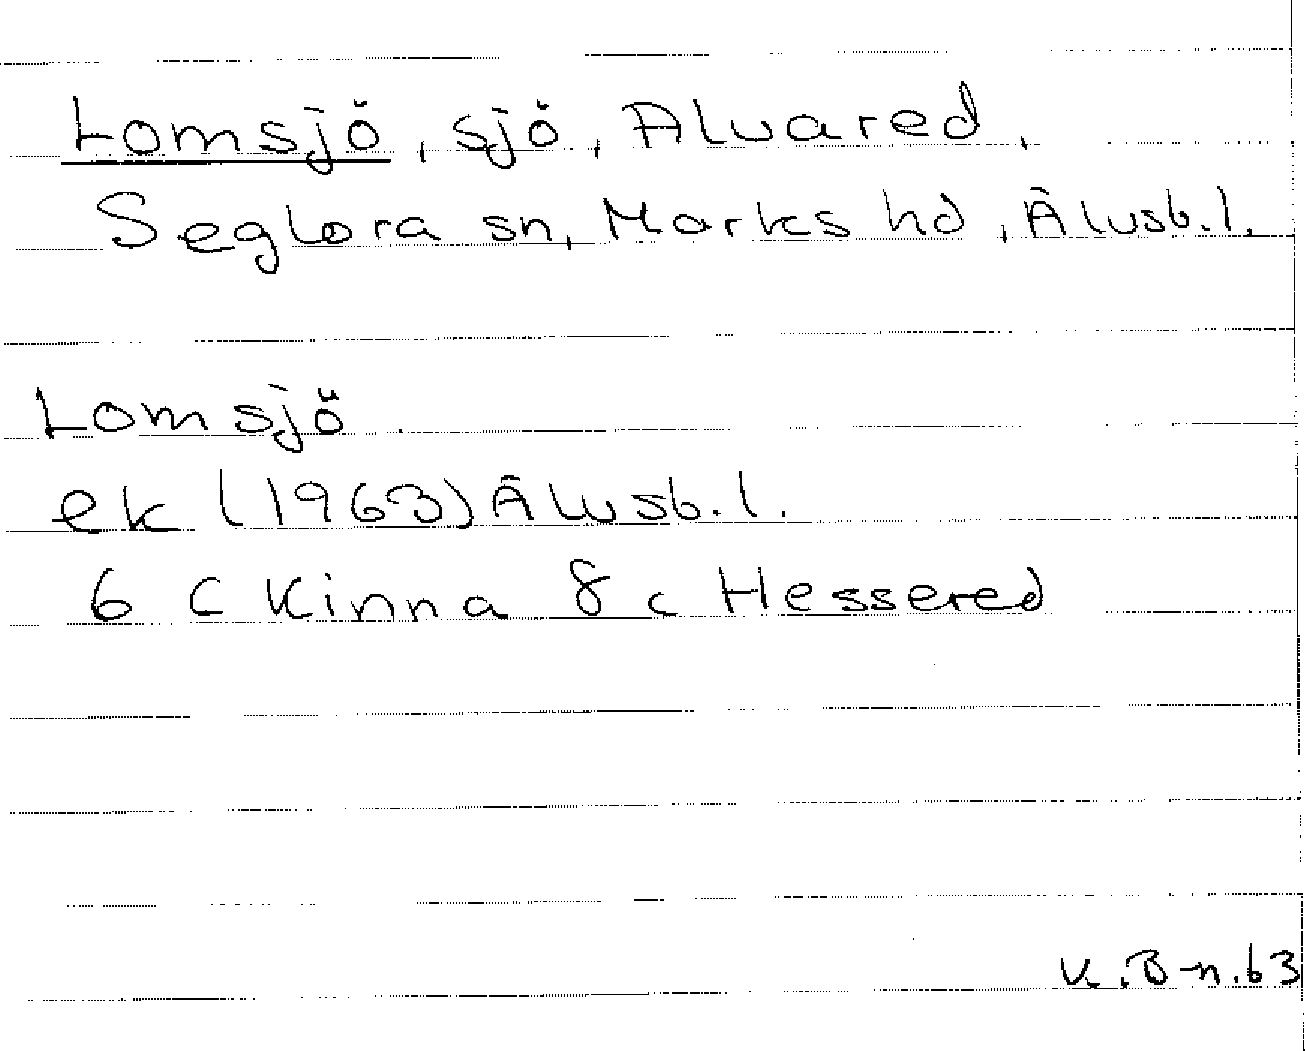 Lomsjö, sjö, Alvared,
Seglora sn, Marks hd, Älvsb.l.
Lomsjö
ek (1963) Älvsb.l.
6 C Kinna 8 c Hessered
K.B-n.63